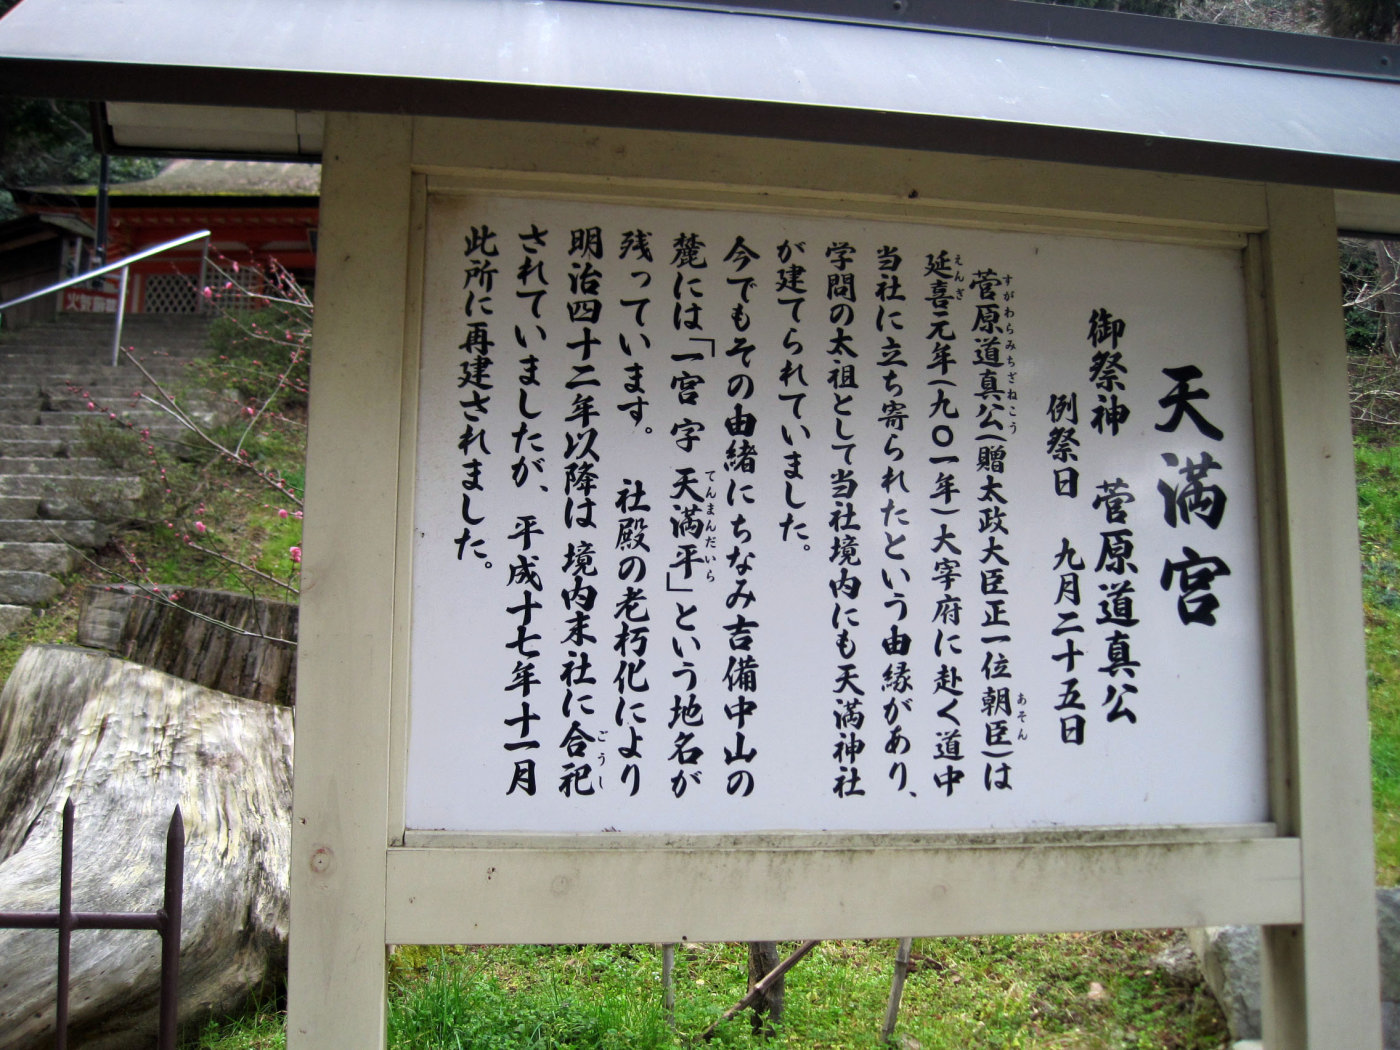 天満宮
御祭神 菅原道真公
例祭日 九月二十五日
菅原道真公(贈太政大臣正一位朝臣)は
すがわらみちざねこう
あそん
延喜元年(九〇一年)大宰府に赴く道中
えんぎ
当社に立ち寄られたという由縁があり、
学問の太祖として当社境内にも天満神社
が建てられていました。
今でもその由緒にちなみ吉備中山の
麓には「一宮字天満平」という地名が
てんまんだいら
残っています。 社殿の老朽化により
明治四十二年以降は境内末社に合祀
ごうし
されていましたが、平成十七年十一月
此所に再建されました。